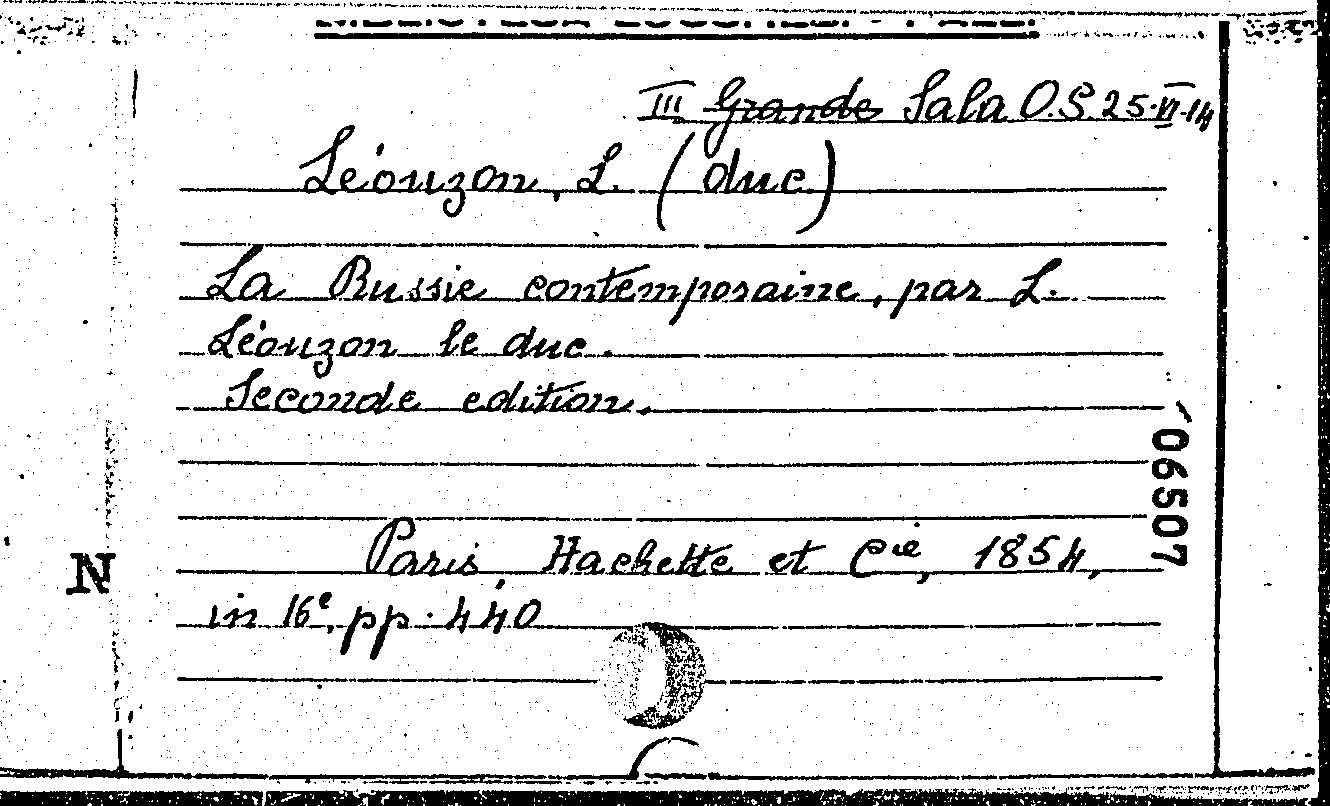 III Grande Sala O.S. 25.VI.14
Léouzon, L. (duc)
La Russie contemporaine, par L.
Léouzon le duc.
Seconde edition.
06507
Paris, Hachette et Cie, 1854,
N
in 16e, pp. 440